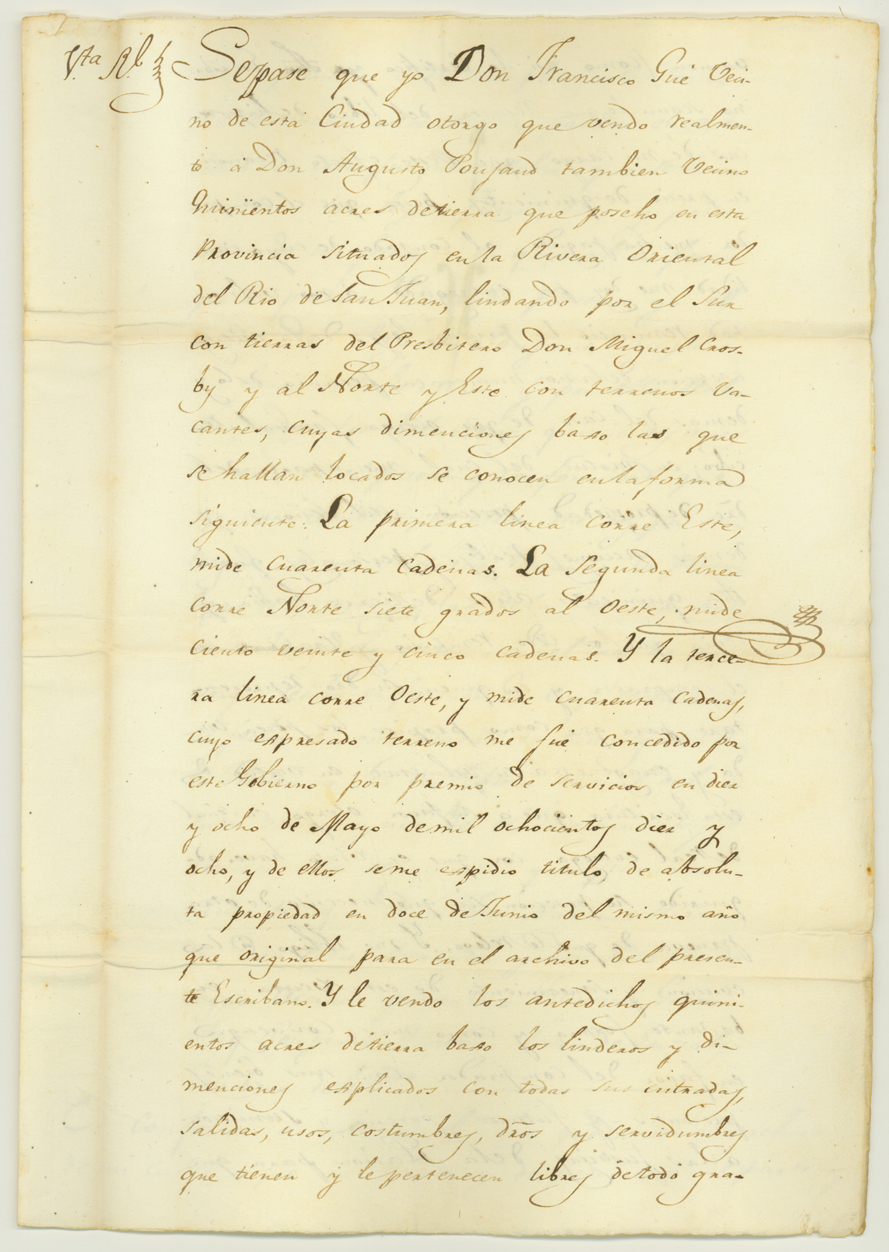 V.ta R.l Sepase que yo Don Francisco Gué Veci-
no de esta Ciudad otorgo que vendo realmen-
te á Don Augusto Poujaud tambien Vecino
Quinientos acres de tierra que poseho en esta
Provincia situados en la Rivera Oriental
del Rio de San Juan, lindando por el Sur
con tierras del Presbitero Don Miguel Cros-
by y al Norte y Este con terrenos va-
cantes, cuyas dimenciones baxo las que
se hallan locados se conocen en la forma
siguiente: La primera linea corre Este,
mide cuarenta cadenas. La segunda linea
corre Norte siete grados al Oeste, mide
ciento veinte y cinco cadenas. Y la terce-
ra linea corre Oeste, y mide cuarenta cadenas,
cuyo espresado terreno me fue concedido por
este Gobierno por premio de servicios en diez
y ocho de Mayo de mil ochocientos diez y
ocho, y de ellos se me espidio titulo de absolu-
ta propiedad en doce de Junio del mismo año
que original para en el archivo del presen-
te Escribano. Y le vendo los antedichos quini-
entos acres de tierra baxo los linderos y di-
menciones esplicados con todas sus entradas,
salidas, usos, costumbres, dros y servidumbres
que tienen y le pertenecen libres de todo gra-